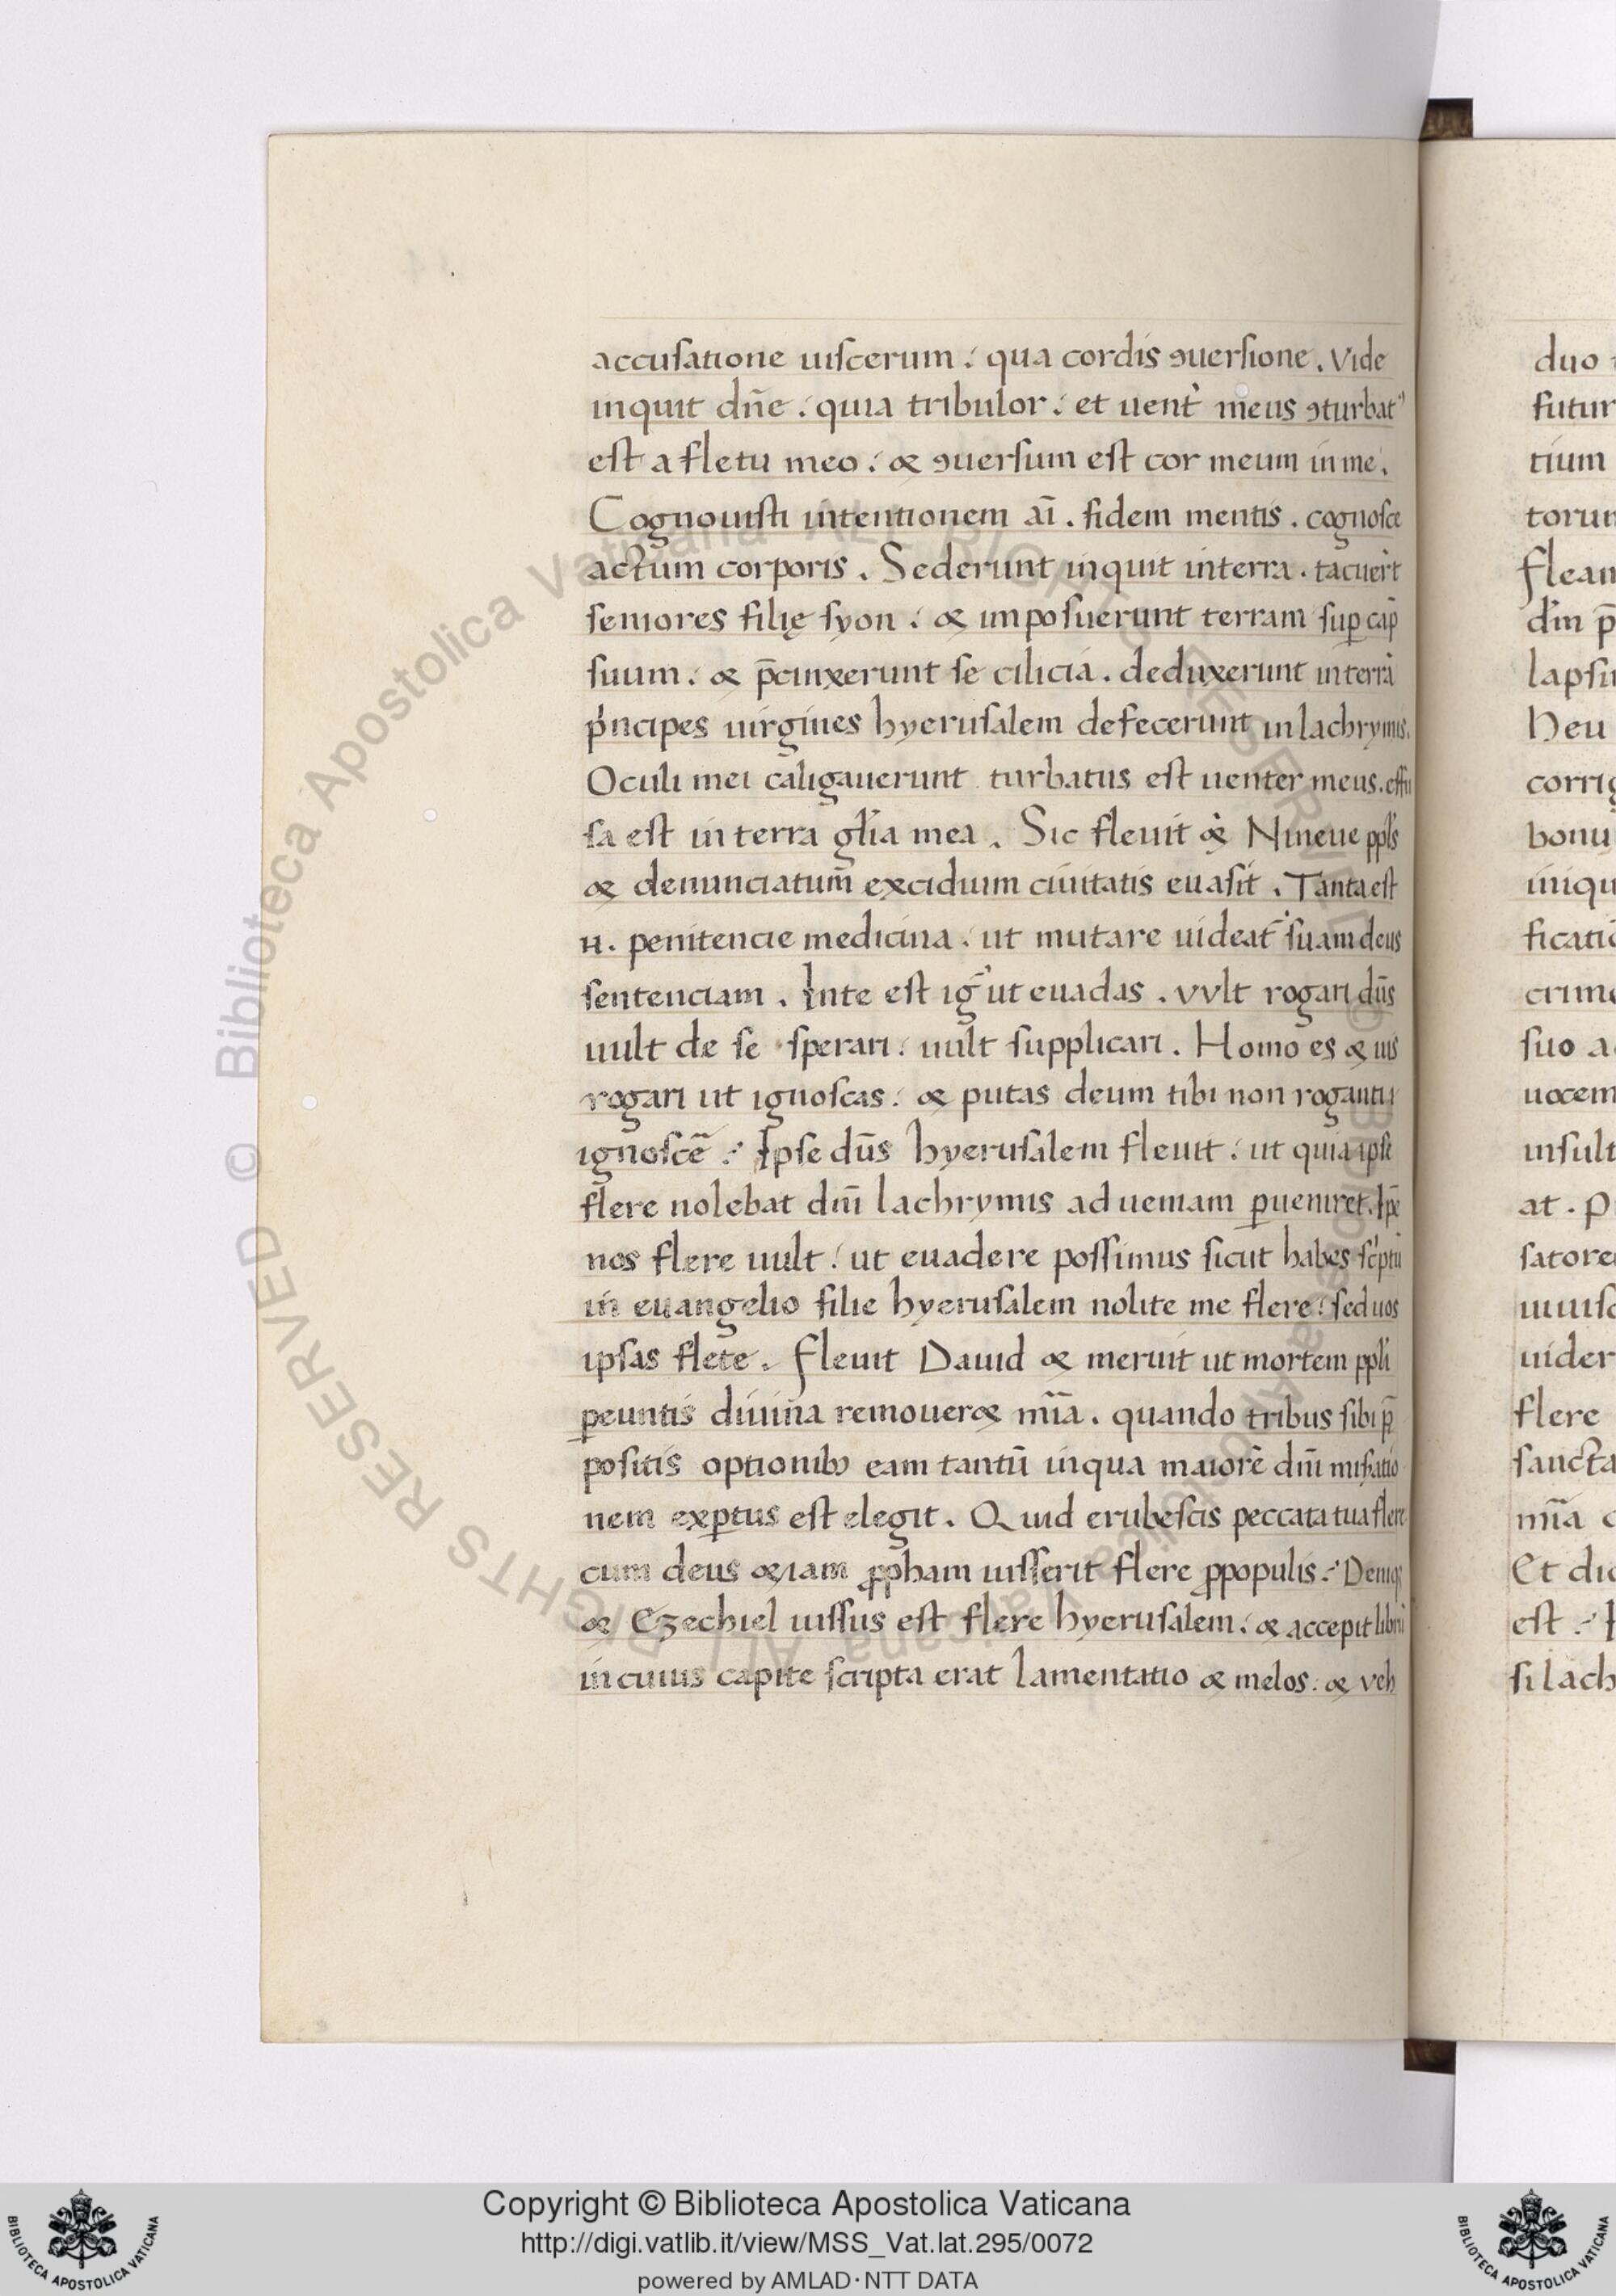 accusatione uiscerum : qua cordis ꝯuersione . Vide
inquit dñe : quia tribulor : et uent̀ meus ꝯturbat᾽
est a fletu meo : & ꝯuersum est cor meum in me .
Cognouisti intentionem aī . fidem mentis . cognosce
actum corporis . Sederunt inquit interra . tacuer̀t
seniores filię syon : & imposuerunt terram suꝑ cap̄
suum : & p̄cinxerunt se cilicia . deduxerunt interrā
pͥncipes uirgines hyerusalem defecerunt inlachrymis .
Oculi mei caligauerunt turbatus est uenter meus . effu
sa est in terra gl̃ia mea . Sic fleuit & Nineue ppl̃s
& denunciatum̄ excidium ciuitatis euasit . Tanta est
.n. penitencie medicina : ut mutare uideat᷑ suam deus
sentenciam . Inte est ig᷑ ut euadas . vvlt rogari dñs
uult de se sperari : uult supplicari . Homo es & uis
rogari ut ignoscas : & putas deum tibi non roganti
ignoscē :᾽ Ipse dñs hyerusalem fleuit : ut quia ipsa
flere nolebat dñi lachrymis ad ueniam ꝑueniret . Ip̄e
nos flere uult : ut euadere possimus sicut habes scͥptū
in euangelio filie hyerusalem nolite me flere : sed uos
ipsas flete . fleuit Dauid & meruit ut mortem ppl̃i
ꝑeuntis diuina remouer& mīa . quando tribus sibi p̄
positis optionibꝫ eam tantū inqua maiorē dñi mis̃atio
nem exꝑtus est elegit . Quid erubescis peccata tua flere
cum deus &iam ꝓpham iusserit flere ꝓpopulis :᾽ Deniqꝫ
& Ezechiel iussus est flere hyerusalem : & accepit librū
in cuius capite scripta erat lamentatio & melos : & veh
duo
futur
tium
torun
flean
dm̄ p̄
lapsu
heu
corrig
bonu
iniqu
ficatio
crime
suo a
uocem
insult
at . p
satore
uider
flere
sancta
mīa c
Et dic
est :᾽ I
si lach
Copyright © Biblioteca Apostolica Vaticana
http://digi.vatlib.it/view/MSS_Vat.lat.295/0072
powered by AMLAD · NTT DATA
BIBLIOTECA APOSTOLICA VATICANA
BIBLIOTECA APOSTOLICA VATICANA
© Biblioteca Apostolica Vaticana ALL RIGHTS RESERVED